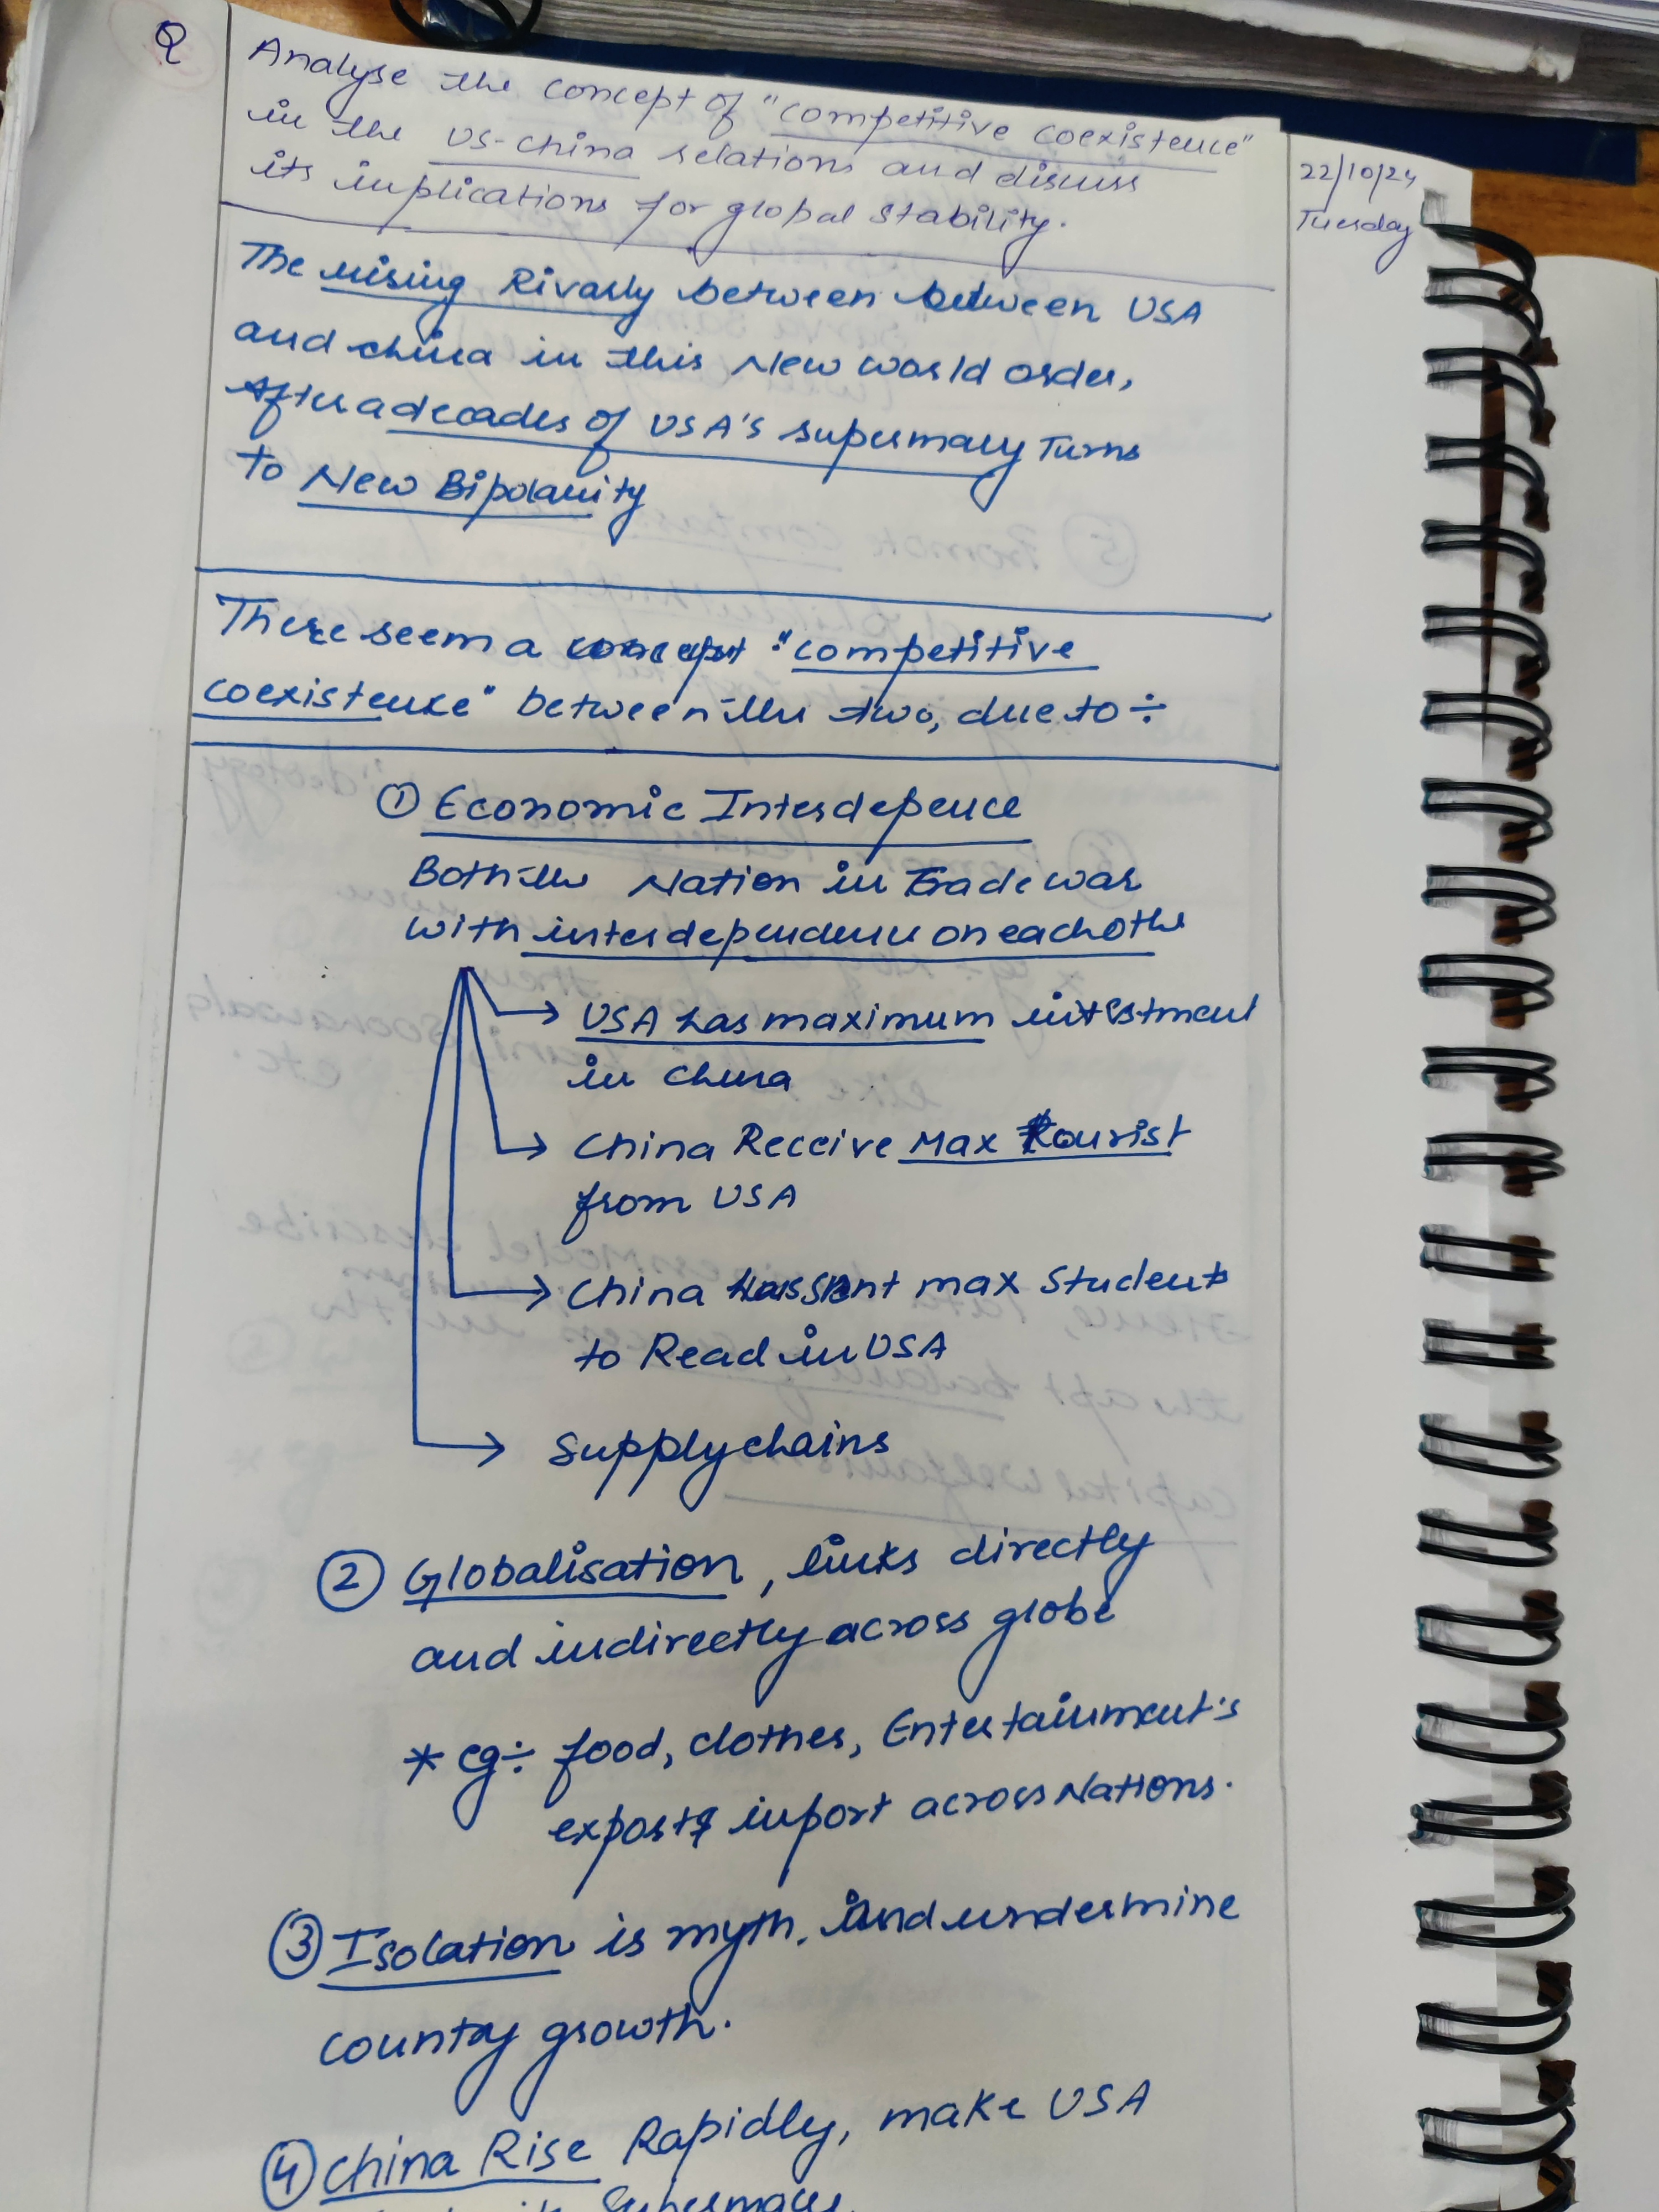 Q
Analyse the concept of "competitive coexistence"
in the US-China relations and discuss
its implications for global stability.
22/10/24
Tuesday
The rising Rivarly between between USA
and china in this New world order,
After a decades of USA's supermacy Turns
to New Bipolarity
There seem a concept "competitive
coexistence" between the two, due to ÷
① Economic Interdepence
Both the Nation in Trade war
with interdependence on each othe
→ USA has maximum investment
in China
→ China Receive Max tourist
from USA
→ China has sent max Students
to Read in USA
→ Supply chains
② Globalisation, links directly
and indirectly across globe
* eg÷ food, clothes, Entertainment's
export & import across Nations.
③ Isolation is myth, and undermine
country growth.
④ China Rise Rapidly, make USA
Supermacy